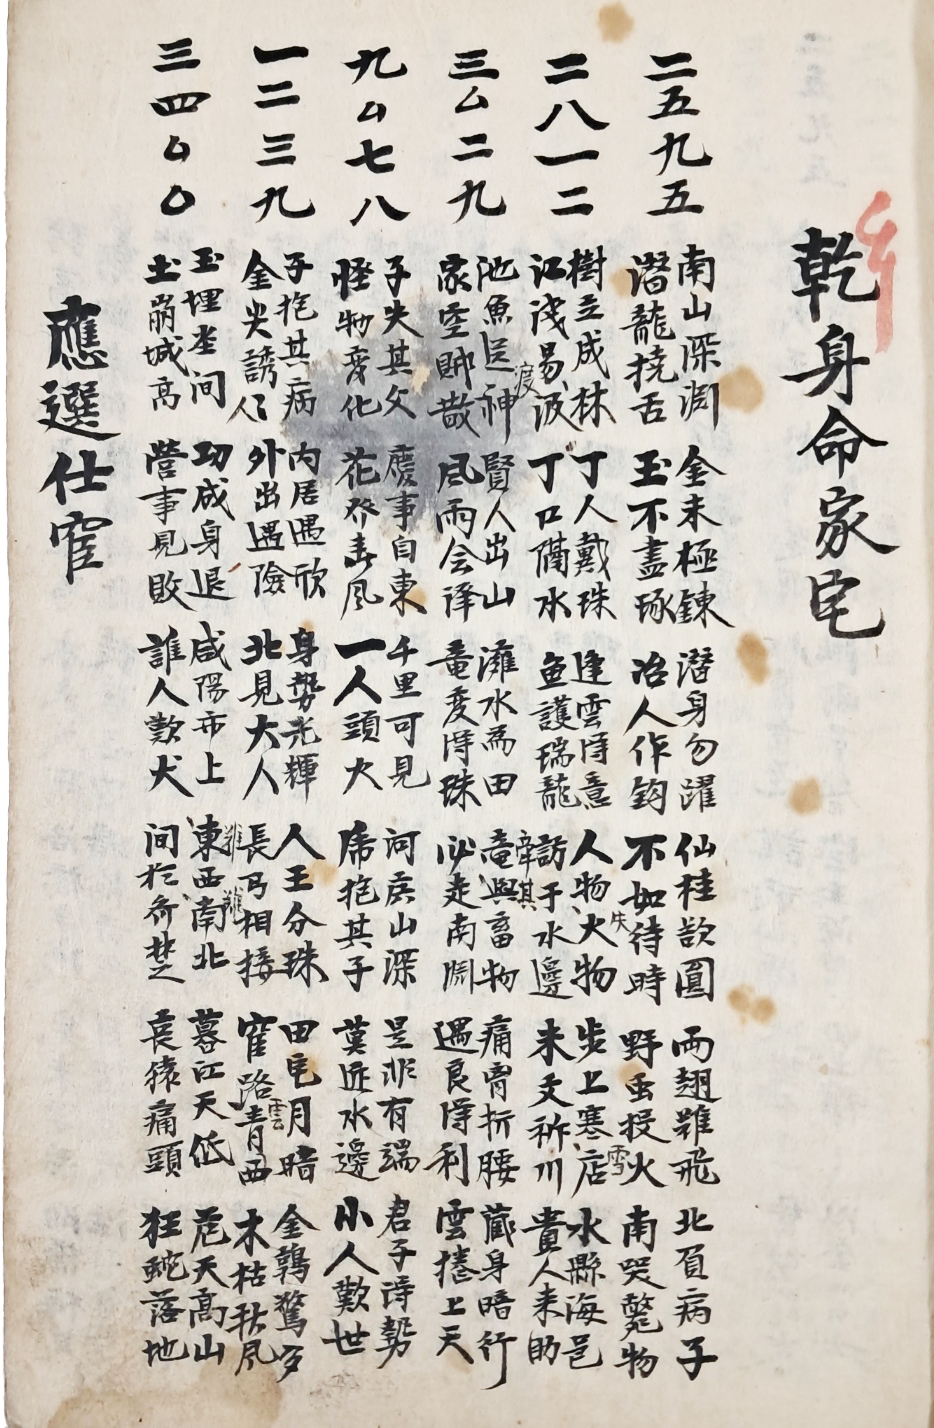 乾身命家宅
二五九五
南山深淵 金未極鍊 潛身勿躍 仙桂欲圓 両翅難飛 北負病子
潛龍撓舌 玉不盡琢 冶人作鉤 不如待時 野虫投火 南哭斃物
二八一二
樹立成林 丁人戴珠 逢雲得意 人物火物 步上寒店 水縣海邑
江淺易汲 丁口隔水 魚護瑞龍 訪于水邊 未文祈川 貴人来助
三厶二九
池魚足神 賢人出山 灘水為田 竜與畜物 痛胃折腰 藏身暗行
家空財散 風雨会译 竜変得珠 必走南淵 遇良得利 雲捲上天
九厶七八
子失其父 慶事自東 千里可見 河広山深 是非有端 君子得勢
怪物変化 花發春風 一人頭大 席抱其子 莫近水邊 小人歎世
一二三九
子抱其病 内居遇欣 身勢光輝 人王分珠 田宅月暗 金鷄驚夕
金夫誘人 外出遇險 北見大人 長乃相接 窂路青西 木枯秋風
三四厶〇
玉埋坐间 功成身退 咸陽市上 東西南北 暮江天低 荒天高山
土崩城高 營事見敗 誰人歎犬 间於齊楚 哀猿痛頭 狂蛇落地
應選仕窂